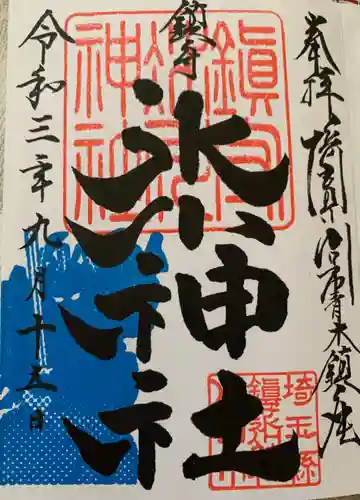 奉拝 埼玉県川口市青木鎮座
鎮守
氷川神社
令和三年九月十五日
鎮守
氷川
神社
埼玉縣